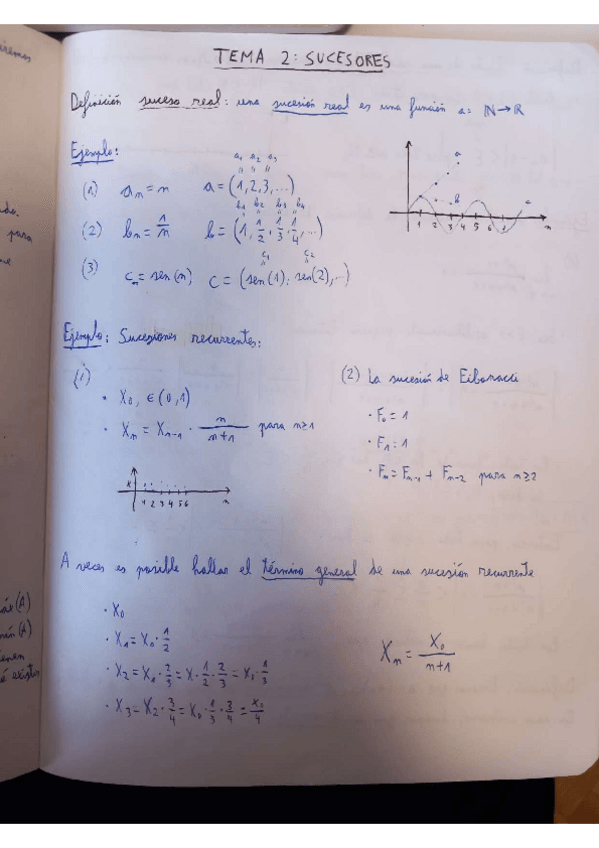 TEMA 2: SUCESORES
Definición suceso real: una sucesión real es una función a: ℕ→ℝ
Ejemplo:
a₁ a₂ a₃
(1) aₙ = n a = (1, 2, 3, ...)
b₁ b₂ b₃ b₄
(2) bₙ = 1/n b = (1, 1/2, 1/3, 1/4, ...)
c₁ c₂
(3) cₙ = sen(n) c = (sen(1), sen(2), ...)
a
b
c
1 2 3 4 5 6 n
Ejemplo: Sucesiones recurrentes:
(1)
· X₀, ∈ (0,1)
· Xₙ = Xₙ₋₁ · n/(n+1) para n≥1
X
1 2 3 4 5 6 n
(2) La sucesión de Fibonacci
· F₀ = 1
· F₁ = 1
· Fₙ = Fₙ₋₁ + Fₙ₋₂ para n≥2
A veces es posible hallar el término general de una sucesión recurrente
· X₀
· X₁ = X₀ · 1/2
· X₂ = X₁ · 2/3 = X · 1/2 · 2/3 = X₀ · 1/3
· X₃ = X₂ · 3/4 = X₀ · 1/3 · 3/4 = X₀/4
Xₙ = X₀/(n+1)
para